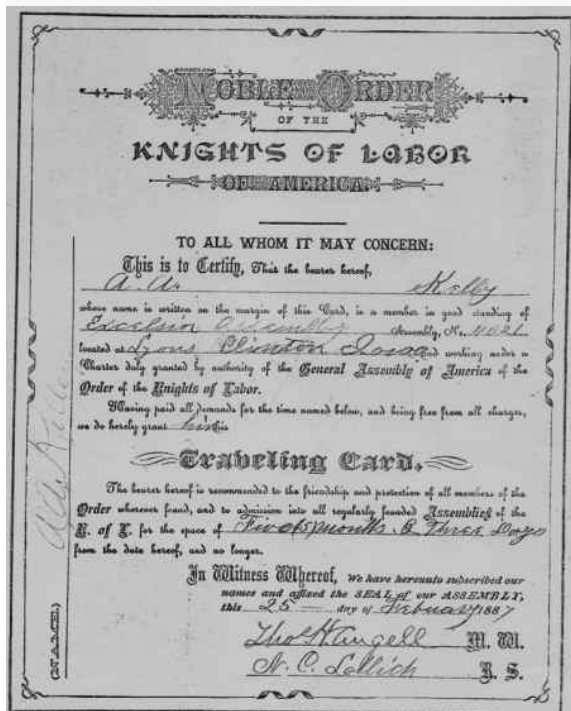 NOBLE AND ORDER
OF THE
KNIGHTS OF LABOR
OF AMERICA.
TO ALL WHOM IT MAY CONCERN:
This is to Certify, That the bearer hereof,
A. A. Kelly
whose name is written on the margin of this Card, is a member in good standing of
Excelsior Assembly Assembly, No.
located at Lyons Clinton Iowa and working under a
Charter duly granted by authority of the General Assembly of America of the
Order of the Knights of Labor.
Having paid all demands for the time named below, and being free from all charges,
we do hereby grant him this
Traveling Card.
The bearer hereof is recommended to the friendship and protection of all members of the
Order wherever found, and to admission into all regularly founded Assemblies of the
K. of L. for the space of months & Three Days
from the date hereof, and no longer.
In Witness Whereof, We have hereunto subscribed our
names and affixed the SEAL of our ASSEMBLY,
this 25 day of February 1887
Thos H. Angell M. W.
N. C. R. S.
(NAME.) A. A. Kelly